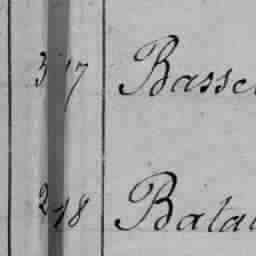 317 Basse
218 Bata